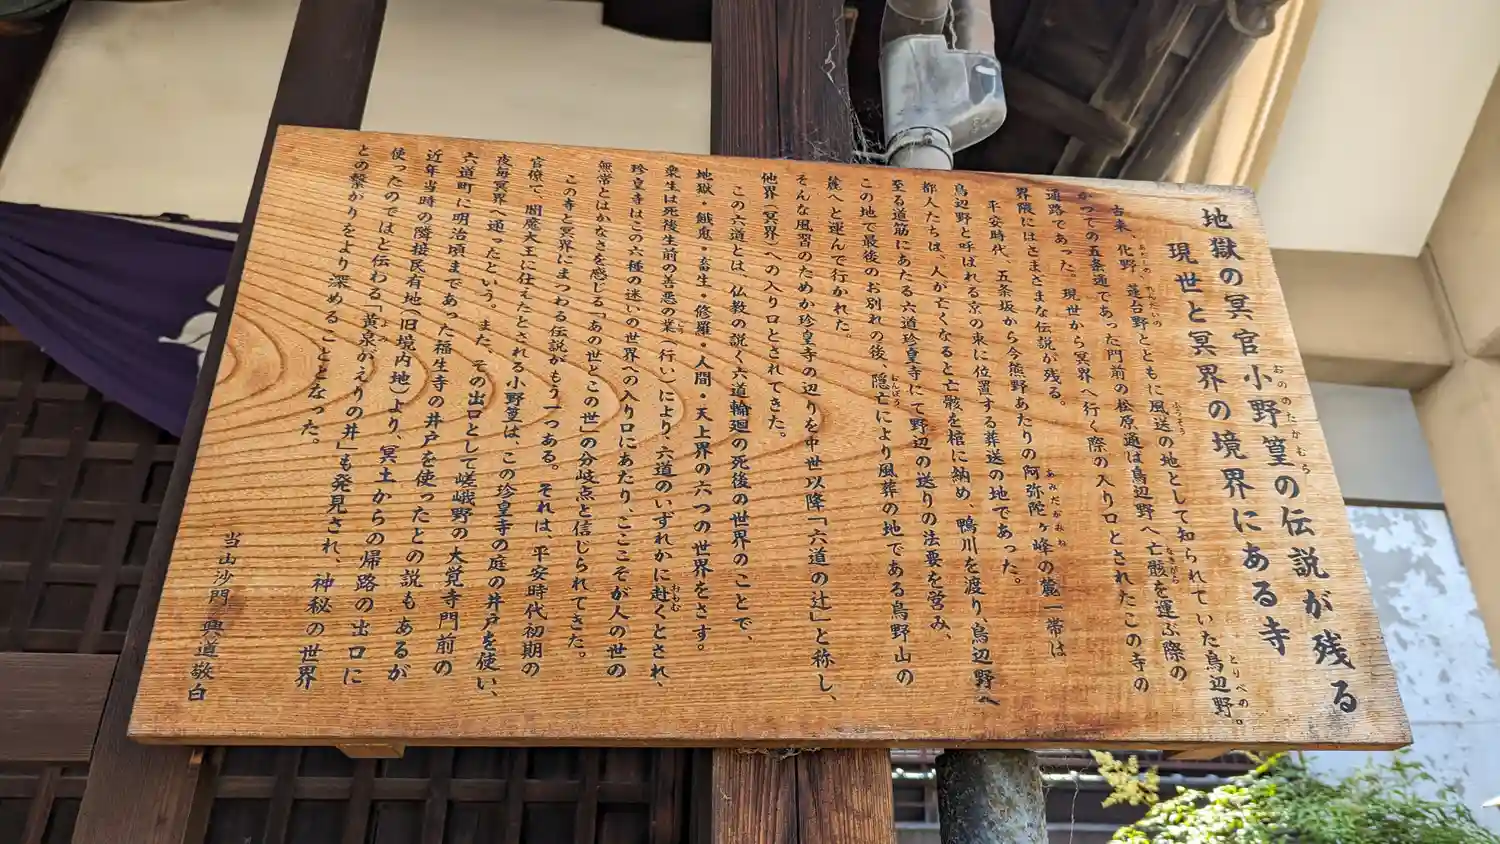 地獄の冥官小野篁の伝説が残る
現世と冥界の境界にある寺
古来、化野、蓮台野とともに風送の地として知られていた鳥辺野。
かつての五条通であった門前の松原通は鳥辺野へ亡骸を運ぶ際の
通路であった。現世から冥界へ行く際の入り口とされたこの寺の
界隈にはさまざまな伝説が残る。
平安時代、五条坂から今熊野あたりの阿弥陀ヶ峰の麓一帯は
鳥辺野と呼ばれる京の東に位置する葬送の地であった。
都人たちは、人が亡くなると亡骸を棺に納め、鴨川を渡り、鳥辺野へ
至る道筋にあたる六道珍皇寺にて野辺の送りの法要を営み、
この地で最後のお別れの後、隠亡により風葬の地である鳥野山の
麓へと運んで行かれた。
そんな風習のためか珍皇寺の辺りを中世以降「六道の辻」と称し、
他界（冥界）への入り口とされてきた。
この六道とは、仏教の説く六道輪廻の死後の世界のことで、
地獄・餓鬼・畜生・修羅・人間・天上界の六つの世界をさす。
衆生は死後生前の善悪の業（行い）により、六道のいずれかに赴くとされ、
珍皇寺はこの六種の迷いの世界への入り口にあたり、ここそが人の世の
無常とはかなさを感じる「あの世とこの世」の分岐点と信じられてきた。
この寺と冥界にまつわる伝説がもう一つある。それは、平安時代初期の
官僚で、閻魔大王に仕えたとされる小野篁は、この珍皇寺の庭の井戸を使い、
夜毎冥界へ通ったという。また、その出口として嵯峨野の大覚寺門前の
六道町に明治頃まであった福生寺の井戸を使ったとの説もあるが
近年当時の隣接民有地（旧境内地）より、冥土からの帰路の出口に
使ったのではと伝わる「黄泉がえりの井」も発見され、神秘の世界
との繋がりをより深めることとなった。
当山沙門 興道敬白